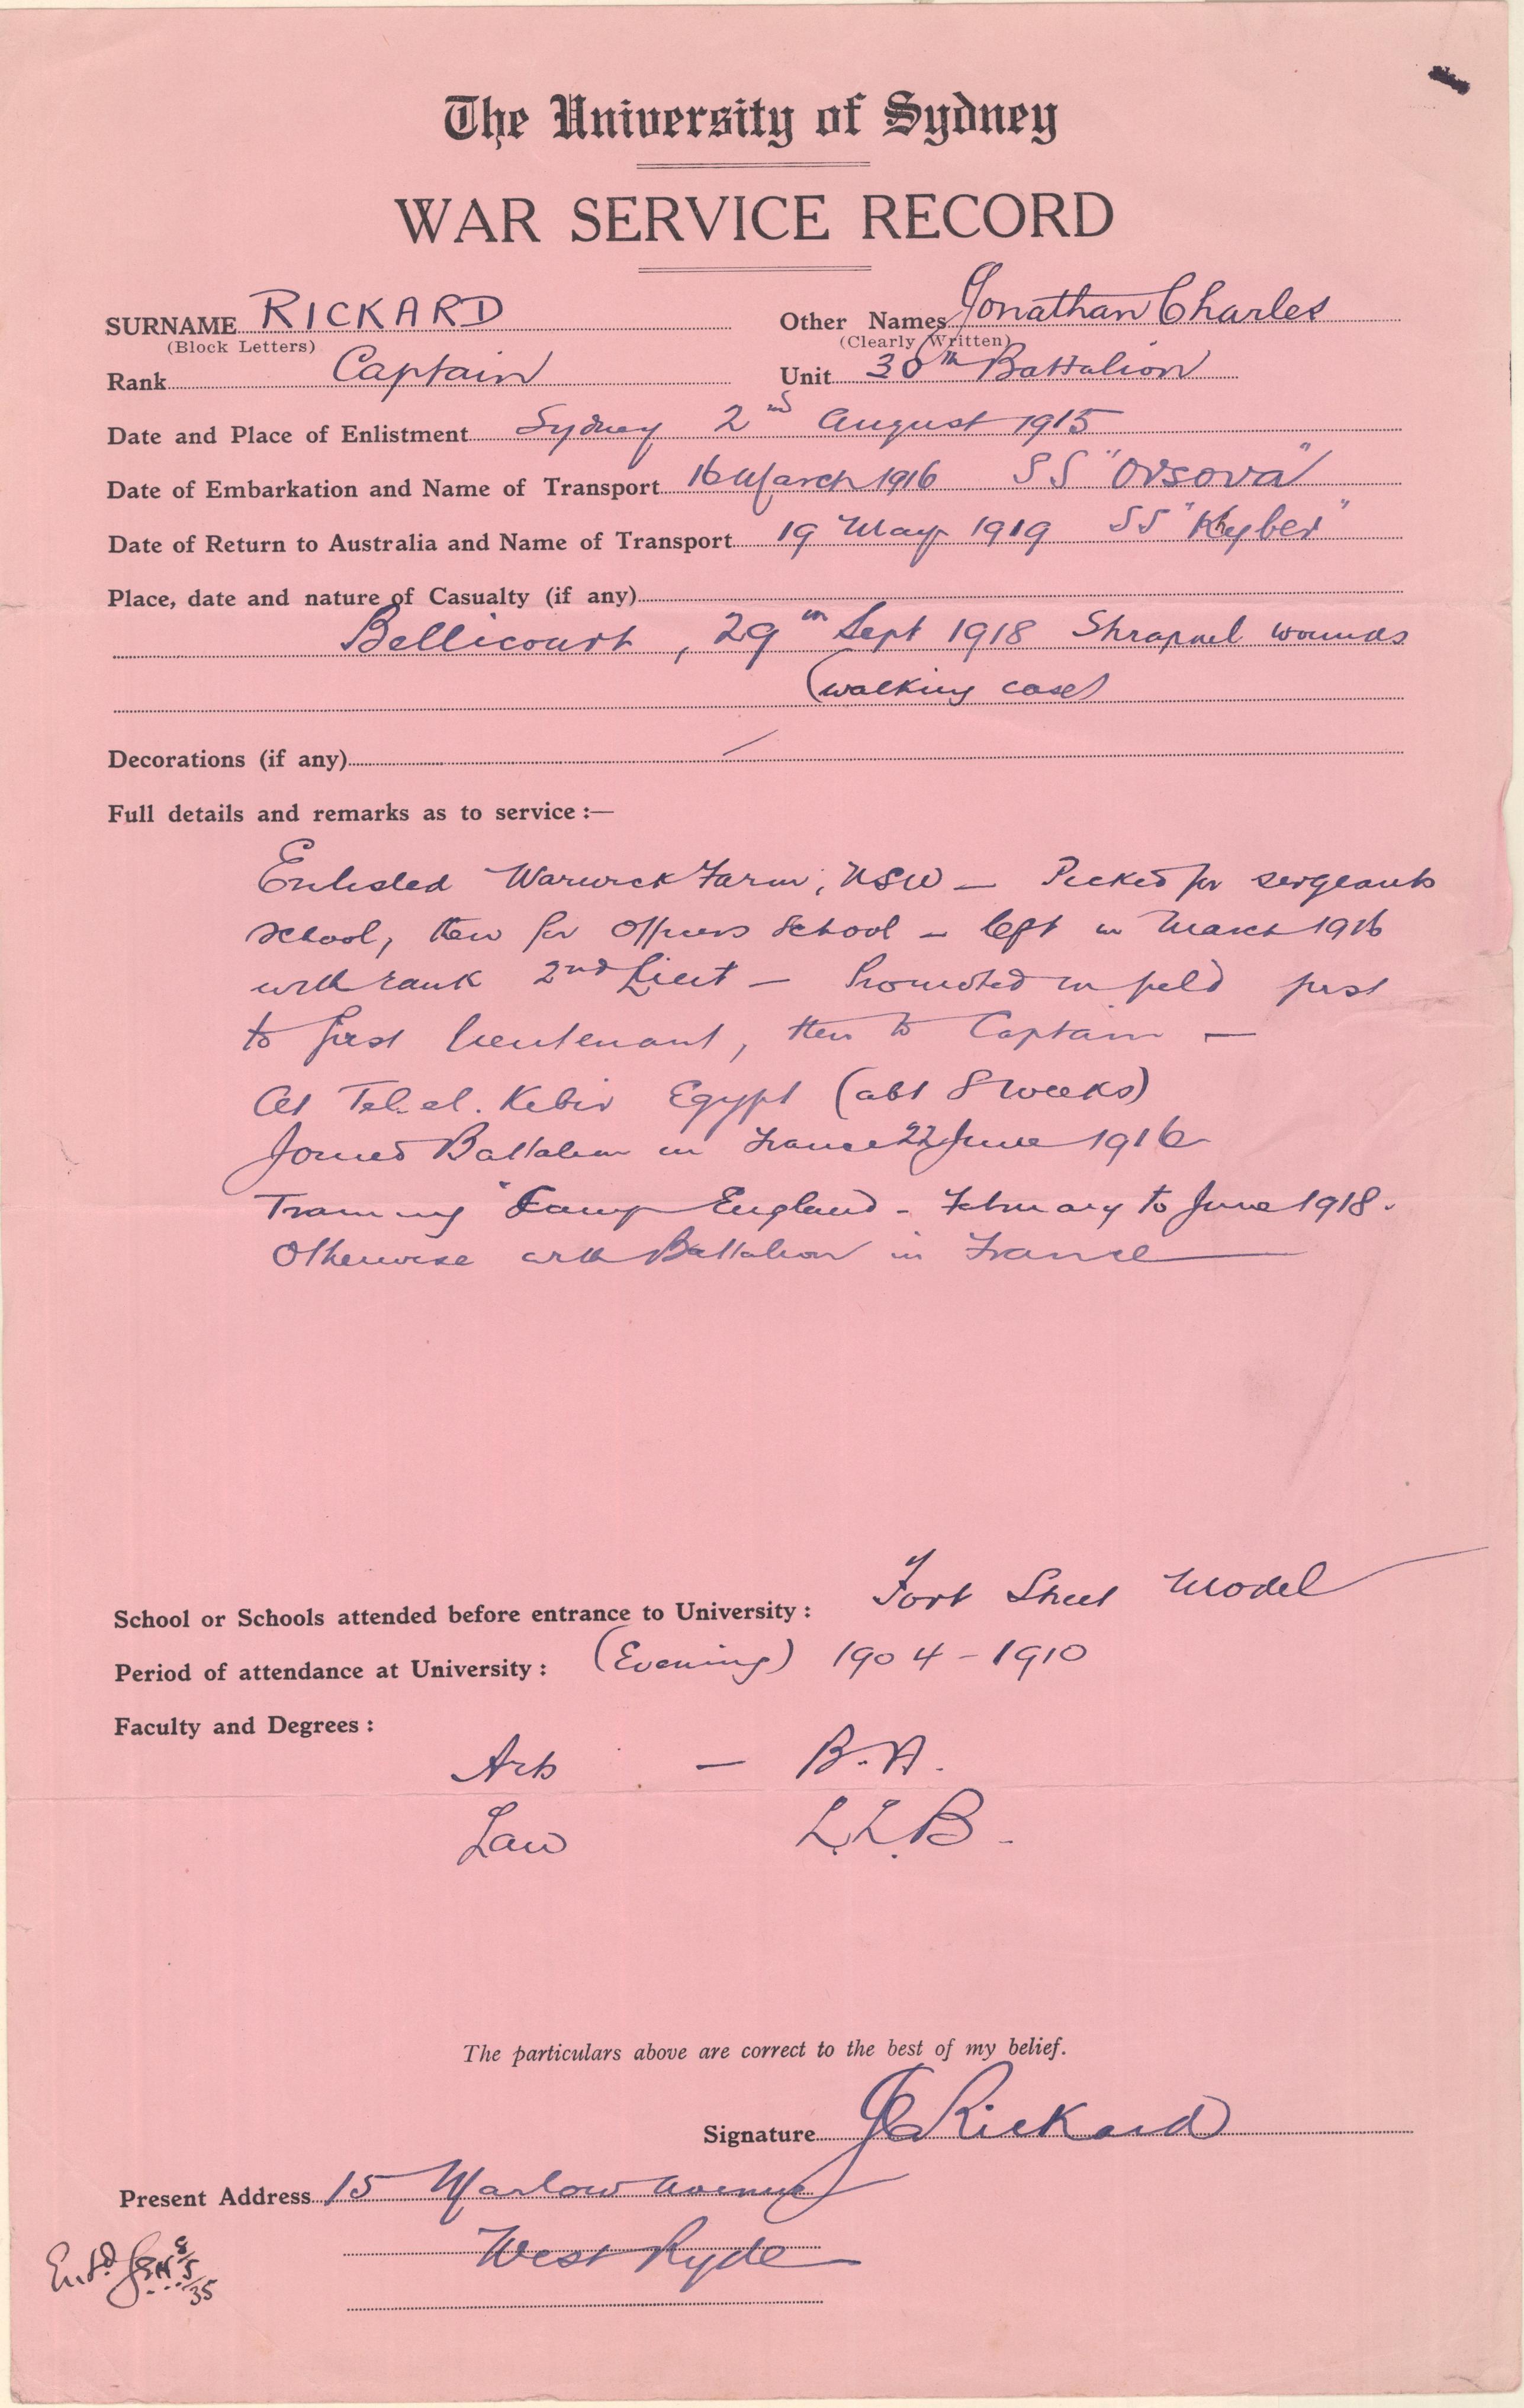 The University of Sydney
WAR SERVICE RECORD
SURNAME RICKARD Other Names Jonathan Charles
(Block Letters) (Clearly Written)
Rank Captain Unit 30th Battalion
Date and Place of Enlistment Sydney 2nd August 1915
Date of Embarkation and Name of Transport 16 March 1916 SS "Orsova"
Date of Return to Australia and Name of Transport 19 May 1919 SS "Khyber"
Place, date and nature of Casualty (if any)
Bellicourt, 29th Sept 1918 Shrapnel wounds
(walking case)
Decorations (if any) /
Full details and remarks as to service :—
Enlisted Warwick Farm, NSW — Picked for sergeants
school, then for Officers School — left in March 1916
with rank 2nd Lieut — Promoted in field first
to first lieutenant, then to Captain —
At Tel. el. Kebir Egypt (abt 8 weeks)
Joined Battalion in France 22 June 1916
Training Camp England - February to June 1918.
Otherwise with Battalion in France
School or Schools attended before entrance to University : Fort Street Model
Period of attendance at University : (Evening) 1904-1910
Faculty and Degrees :
Arts — B.A.
Law L.L.B.
The particulars above are correct to the best of my belief.
Signature JCRickard
Present Address 15 Marlow Avenue
West Ryde
Entd 8/5/35